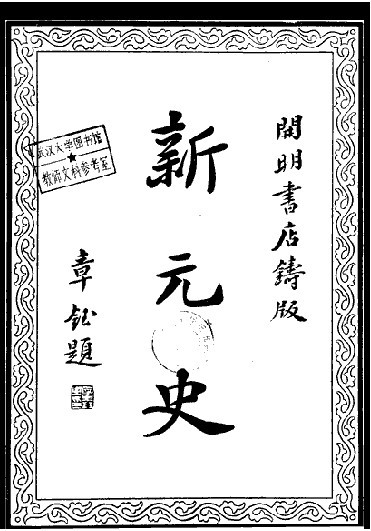 開明書店鑄版
新元史
章鈺題
武汉大学图书馆
教师文科参考室